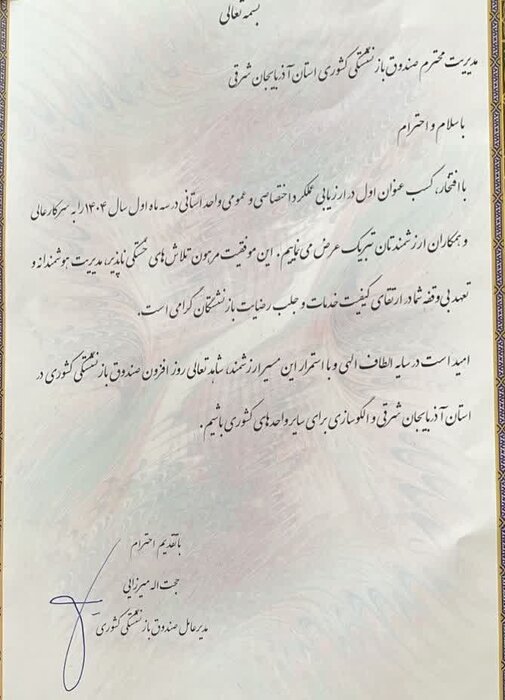 بسمه تعالی
مدیریت محترم صندوق بازنشستگی کشوری استان آذربایجان شرقی
با سلام و احترام
با افتخار، کسب عنوان اول در ارزیابی عملکرد اختصاصی و عمومی واحد استانی در سه ماه اول سال ۱۴۰۴ را به سرکارعالی
و همکاران ارزشمندتان تبریک عرض می نماییم. این موفقیت مرهون تلاش های خستگی ناپذیر، مدیریت هوشمندانه و
تعهد بی وقفه شما در ارتقای کیفیت خدمات و جلب رضایت بازنشستگان گرامی است.
امید است در سایه الطاف الهی و با استمرار این مسیر ارزشمند، شاهد تعالی روز افزون صندوق بازنشستگی کشوری در
استان آذربایجان شرقی و الگوسازی برای سایر واحدهای کشوری باشیم.
با تقدیم احترام
حجت اله میرزایی
مدیرعامل صندوق بازنشستگی کشوری